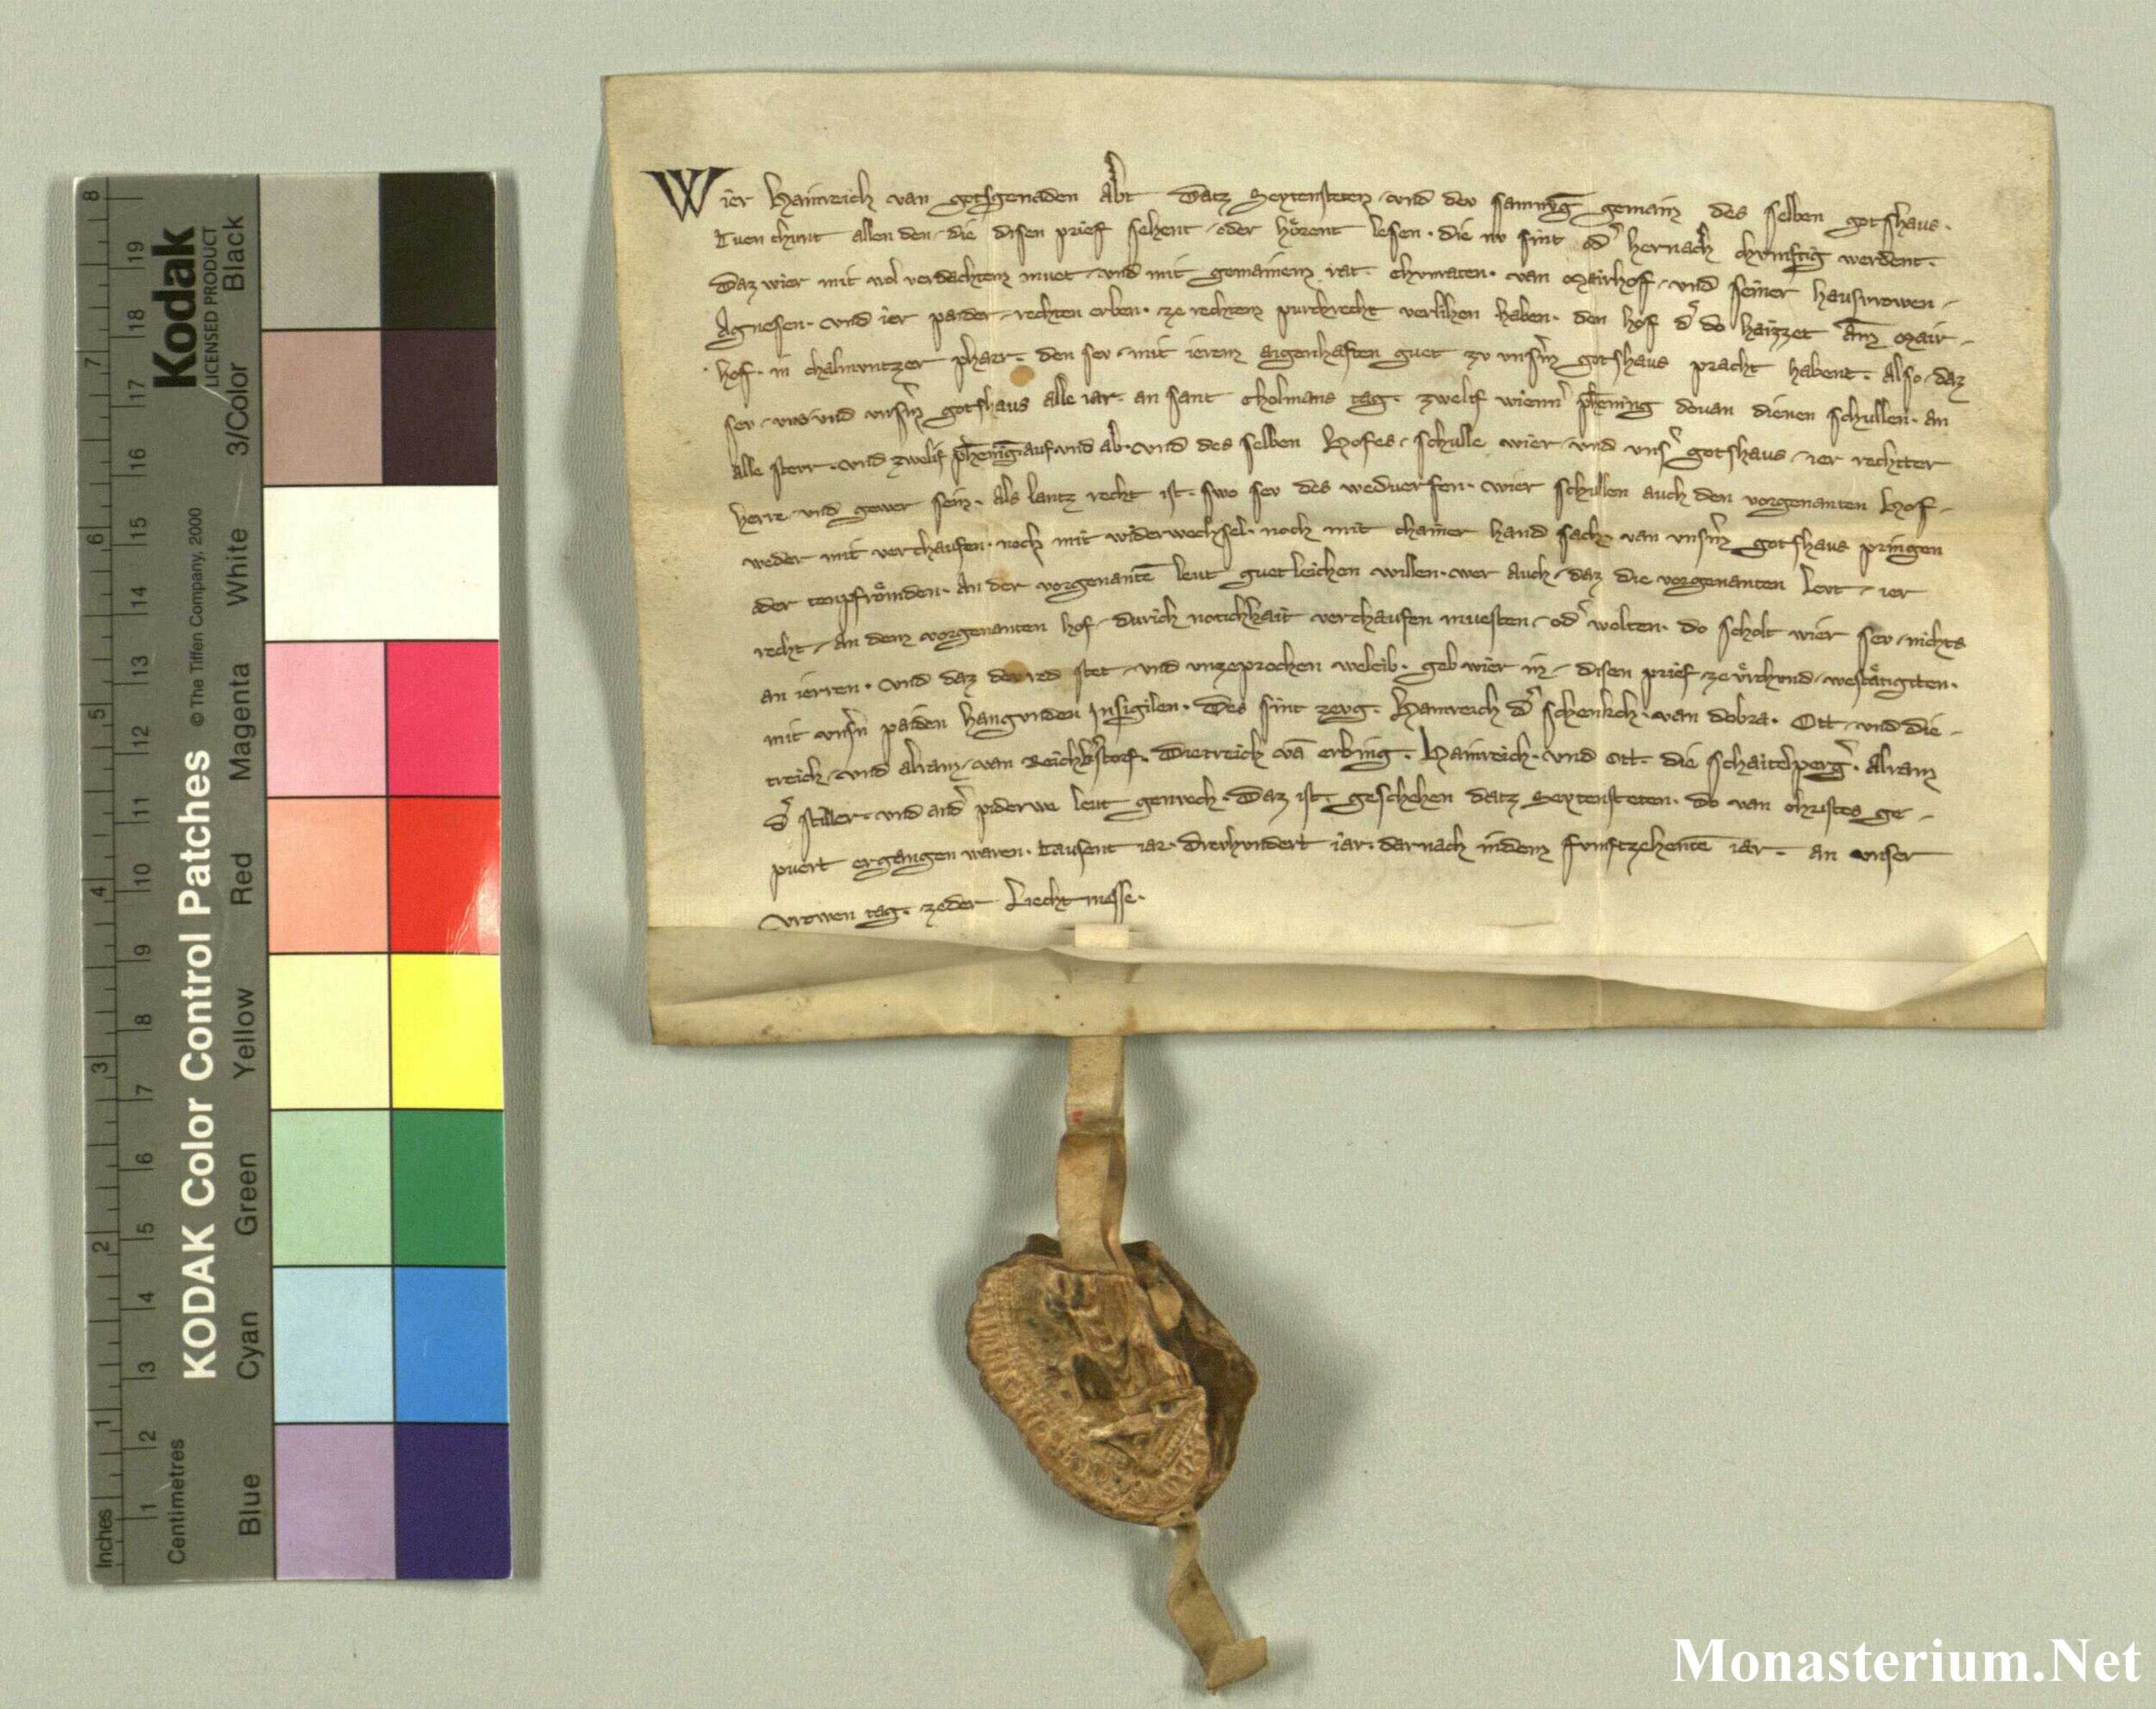 Wier Hainreich van gotsgenaden Abt Datz Seytensteten und dev samnvg gemain des selben gotshaus.
Tuen chunt allen den die disen prief sehent oder hörent lesen. die nv sint od hernach chvmftig werdent.
Daz wier mit wol verdachtem muet und mit gemainem rat. chvnraten. van Mairhof und seiner hausvrowen
Agnesen. und ier paider rechten erben. ze rechtem purchrecht verlihen haben. den hof d do haizzet Am Mair
hof. in chalmvntzer pharr. den sev mit ierem aigenhaften guet zv vnsm gotshaus pracht habent. Also daz
sev uns und vnsm gotshaus alle iar. an sant cholmans tag. zwelif wienn phening dovan dienen schullen. an
alle sterr. und zwelif phenig auf und ab. und des selben Hofes schulle wier und vns gotshaus ier rechtter
herre und gewer sein. als lantz recht ist. swo sev des wedverfen. Wier schullen auch den vorgenanten Hof
weder mit verchaufen. noch mit widerwechsel. noch mit chainer hand sach. van vnsm gotshaus pringen
oder tenpfrömden. An der vorgenante leut guetleichen willen. wer auch daz die vorgenanten levt ier
recht an dem vorgenanten hof durich notichhait verchaufen muesten od wolten. do scholt wier sev nichts
an ierren. und daz dev red stet und vnzeprochen weleib. geb wier in disen prief ze vrchvnd westätigtten.
mit vnsn paiden hangvnden Insigilen. Des sint zevg. Hainreich d schenkch. van dobra. Ott und die
treich und alram van Reichstorf. Dietreich va erbing. Hainreich. und Ott. die schaitnperg. Alram
d stiller. und and piderwe leut genvech. Daz ist. geschehen datz Seytensteten. do van christes ge
puert ergangen waren. tausent iar. drevhvndert iar. darnach indem fvnftzehente iar. an vnser
vrowen tag. zeder Liechtmesse.
Kodak
LICENSED PRODUCT
KODAK Color Control Patches
© The Tiffen Company, 2000
Black
3/Color
White
Magenta
Red
Yellow
Green
Cyan
Blue
Inches
1
2
3
4
5
6
7
8
Centimetres
1
2
3
4
5
6
7
8
9
10
11
12
13
14
15
16
17
18
19
Monasterium.Net